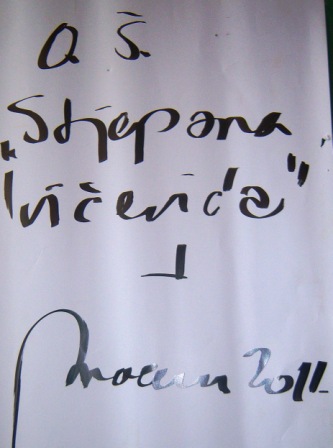 O. Š.
„Stjepana
Ivičevića"
2011.